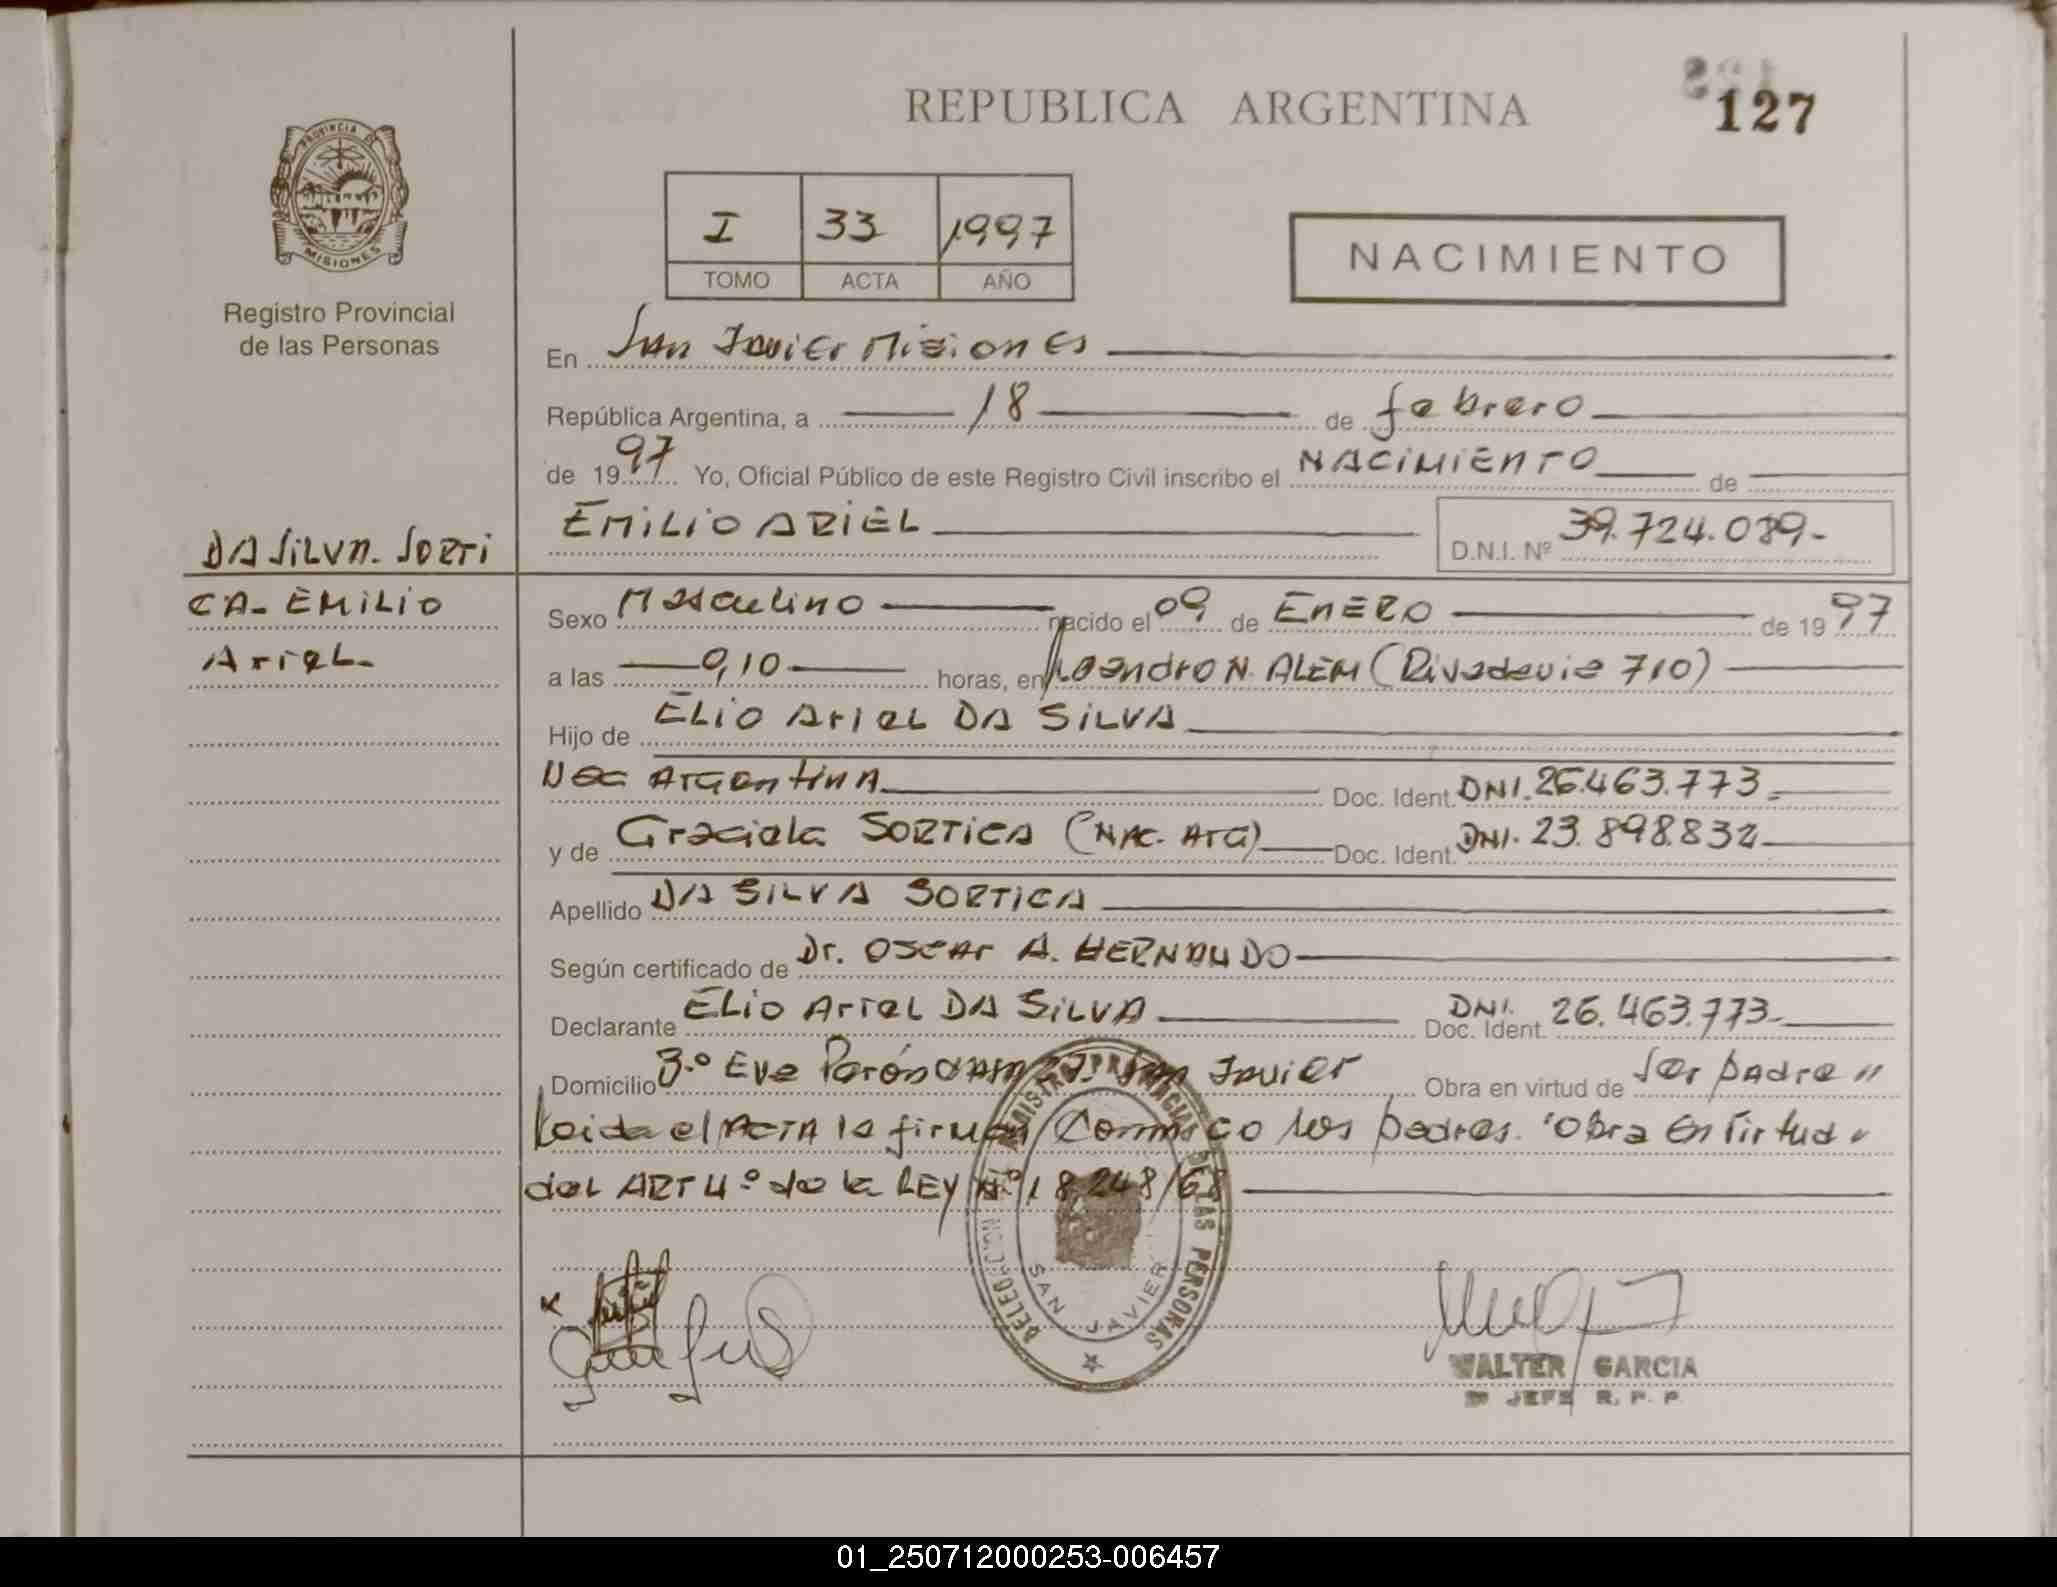 REPUBLICA ARGENTINA
127
PROVINCIA DE
MISIONES
Registro Provincial
de las Personas
I 33 1997
TOMO ACTA AÑO
NACIMIENTO
En San Javier Misiones
República Argentina, a 18 de febrero
de 1997 Yo, Oficial Público de este Registro Civil inscribo el NACIMIENTO de
EMILIO ARIEL
D.N.I. Nº 39.724.089-
DA SILVA. SORTI
CA- EMILIO
Ariel-
Sexo Masculino nacido el 09 de ENERO de 1997
a las 9,10 horas, en Leandro N. ALEM (Rivadavia 710)
Hijo de ELIO Ariel DA SILVA
Nac Argentina Doc. Ident. DNI. 26.463.773
y de Graciela SORTICA (NAC. ArG) Doc. Ident. DNI. 23.898.832
Apellido DA SILVA SORTICA
Según certificado de Dr. OSCAr A. HERNANDO
Declarante ELIO Ariel DA SILVA Doc. Ident. DNI. 26.463.773-
Domicilio Bº Eva Perón San Javier Obra en virtud de Ser padre "
Leida el ACTA la firman Conmigo los padres. "Obra En Virtud
del ART 4º de la LEY Nº 18.248/69
DELEG REGISTRO PROVINCIAL DE LAS PERSONAS
SAN JAVIER
WALTER GARCIA
JEFE R. P. P.
01_250712000253-006457